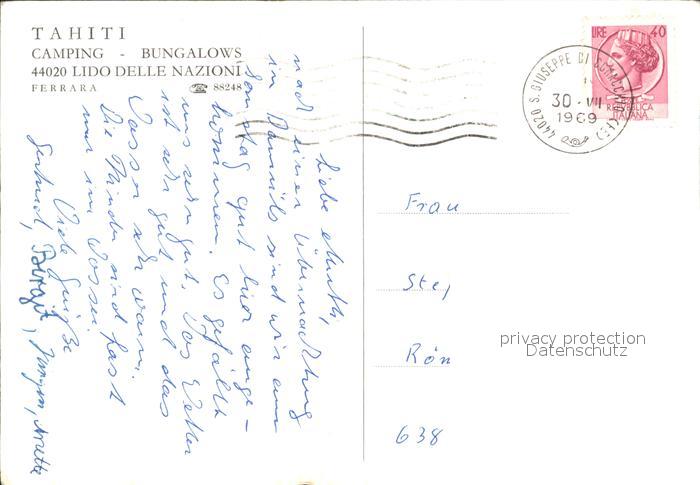 TAHITI
CAMPING - BUNGALOWS
44020 LIDO DELLE NAZIONI
FERRARA ☎ 88248
LIRE 40
REPUBBLICA
ITALIANA
44020 S. GIUSEPPE DI
30-VII
1969
Liebe
nach einer Übernachtung
in sind wir am
Sonntag gut hier ange-
kommen. Es gefällt
uns sehr gut. Das Wetter
ist sehr gut und das
Wasser sehr warm.
Die Kinder sind fast
nur im Wasser.
Viele Grüße
Gertrud, Birgit, Jürgen, Anette
Frau
Stej
Rön
638
privacy protection
Datenschutz